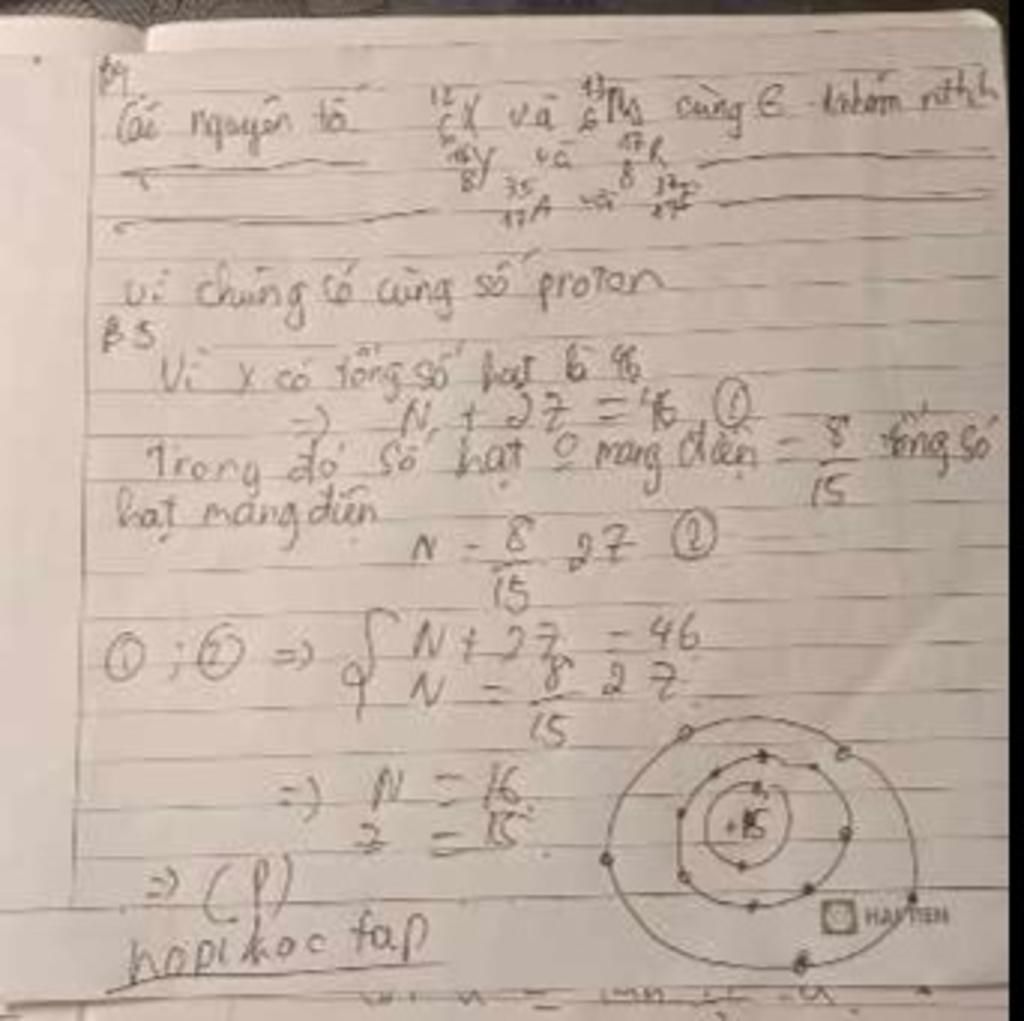 B4
Các nguyên tố ¹²₆X và ¹³₆M cùng € nth h
¹⁶₈Y và ¹⁷₈R
³⁵₁₇A và ³⁷₁₇E
Vì chúng có cùng số proton
B5
Vì X có tổng số hạt là 46
=> N + 2Z = 46 ①
Trong đó số hạt 0 mang điện = 8/15 tổng số
hạt mang điện
N = 8/15 2Z ②
① ; ② => { N + 2Z = 46
N = 8/15 2Z
=> N = 16
Z = 15
+15
=> (P)
HẢI TIẾN